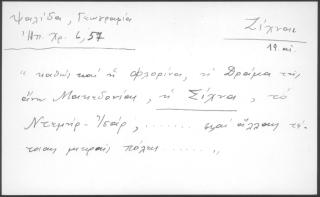 Ψαλίδα, Γεωγραφία
Ἠπ. Χρ. 6, 57
Ζίχναι
19 αἰ.
" καθὼς καὶ ἡ Φλορίνα, ἡ Δράμα τῆς
ἄνω Μακεδονίας, ἡ Ζίχνα, τὸ
Ντεμὴρ-Ἱσάρ, ...... καὶ ἄλλαις τέ-
τοιαις μικραὶς πόλεις ...... "